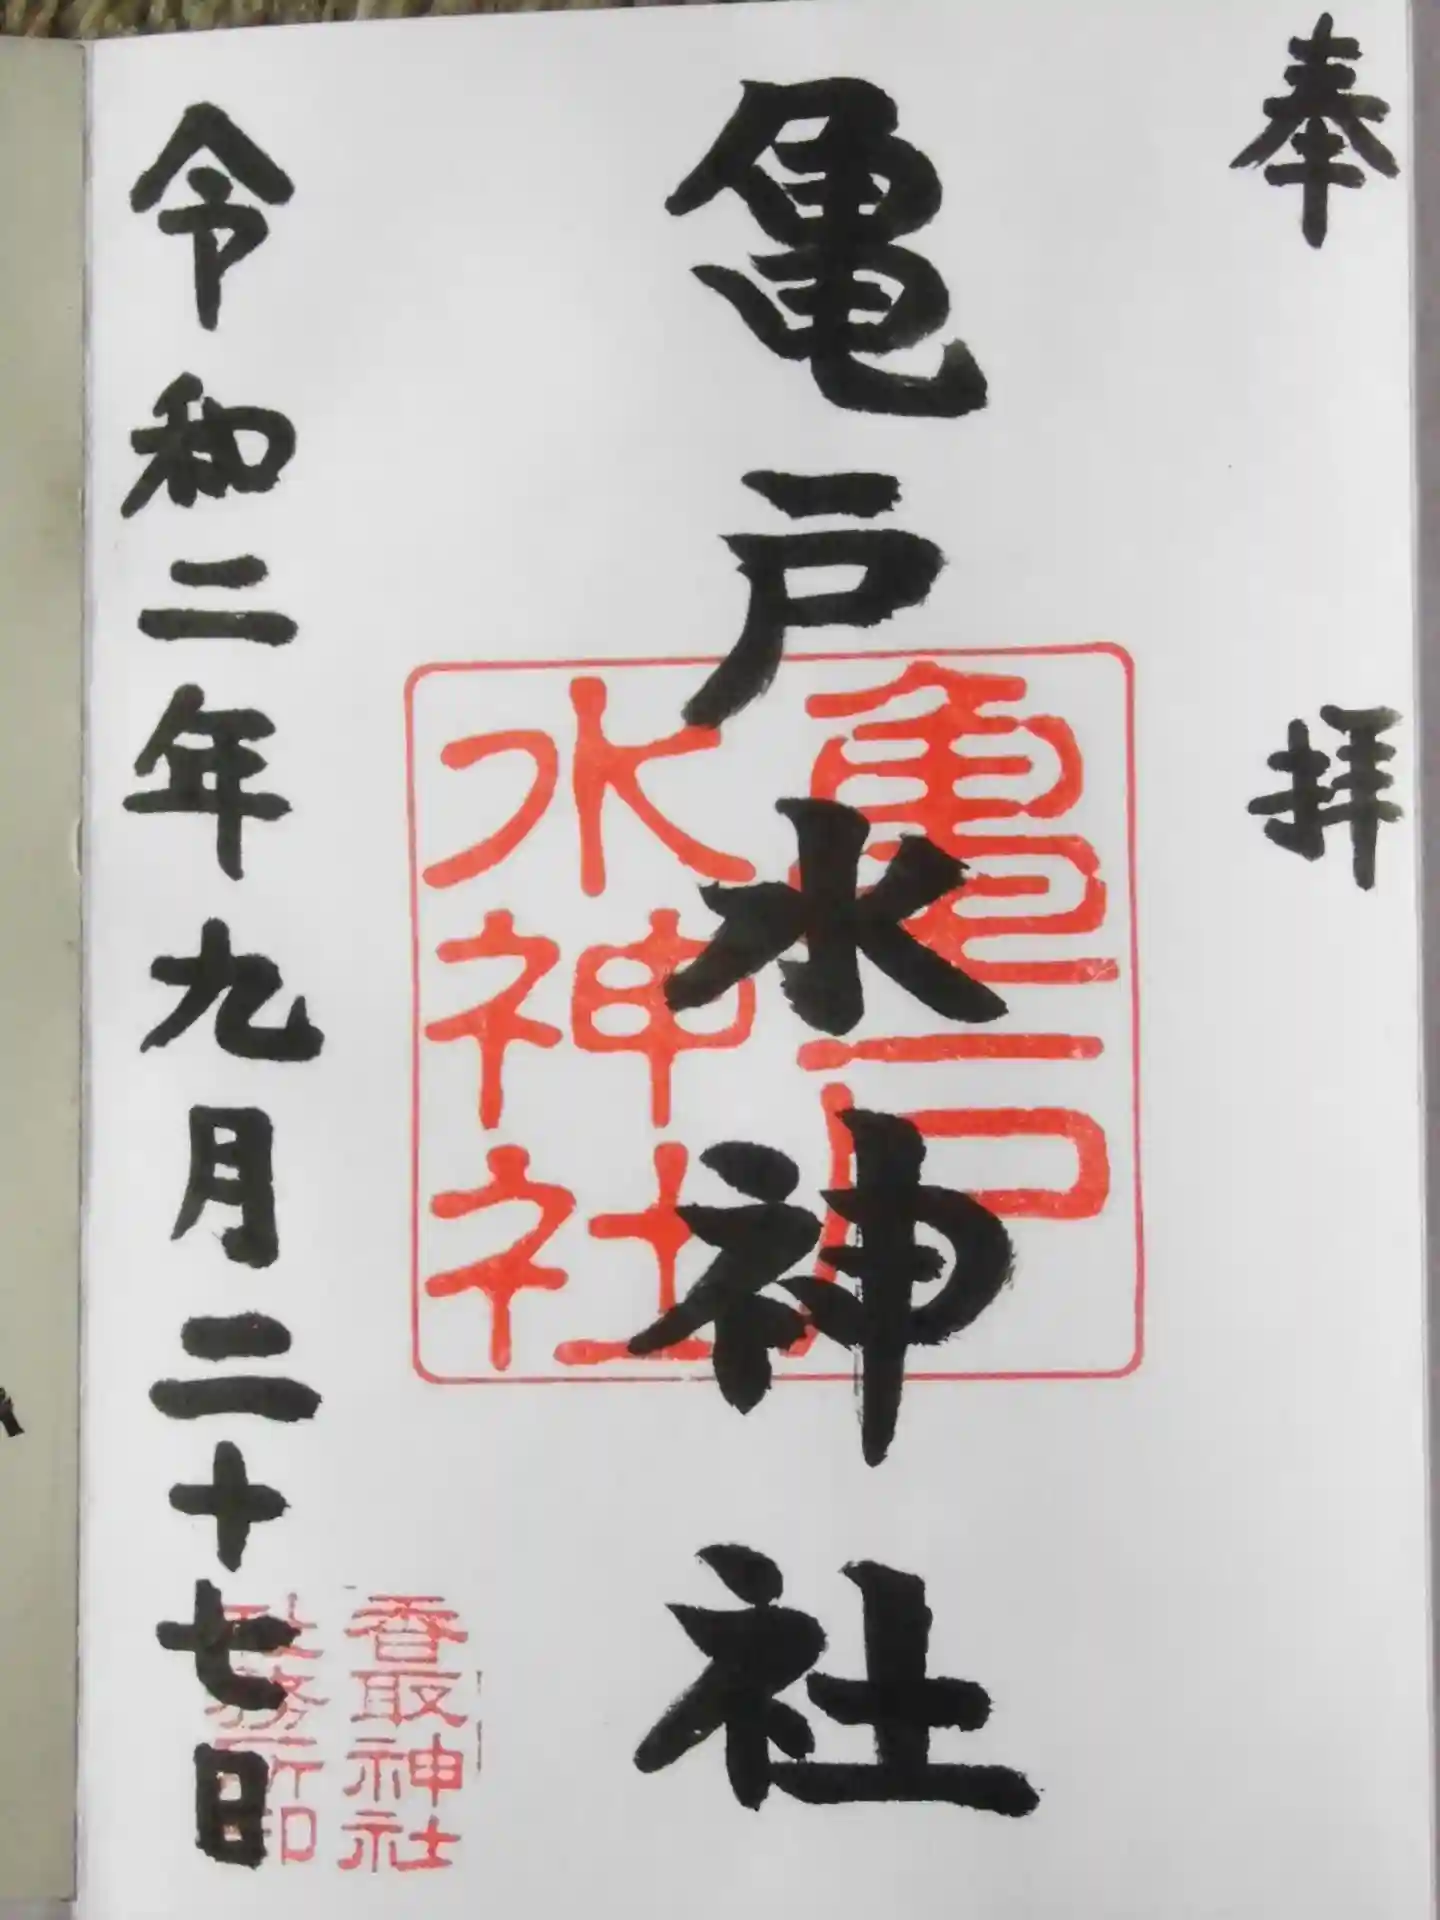 奉拝
亀戸水神社
亀戸
水神社
令和二年九月二十七日
香取神社
社務所印